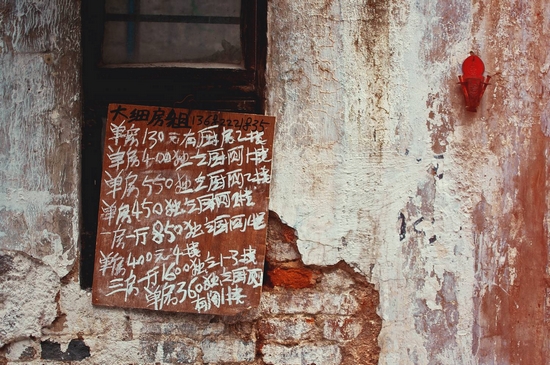 大细房租
单房130元有厨房2楼
单房400独立厨网1楼
单房550独立厨网2楼
单房450独立厨网1楼
一房一厅850独立厨网1楼
单房400元4楼
三房一厅1600独立1-3楼
单房360独立厨网
有间1楼